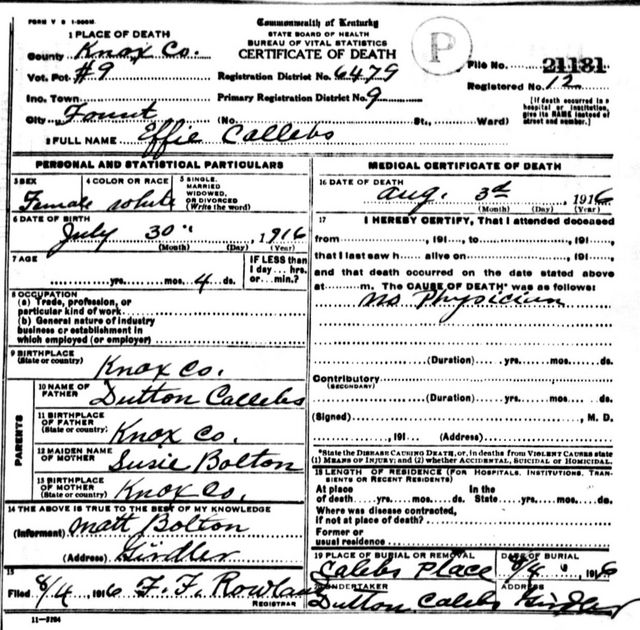 FORM V S 1-500M
Commonwealth of Kentucky
STATE BOARD OF HEALTH
BUREAU OF VITAL STATISTICS
CERTIFICATE OF DEATH
P
1 PLACE OF DEATH
County Knox Co.
Vot. Pct. #9
Inc. Town
City Fount (No. St., Ward)
Registration District No. 6479
Primary Registration District No. 9
File No. 21181
Registered No. 12
[If death occurred in a hospital or institution, give its NAME instead of street and number.]
2 FULL NAME Effie Callebs
PERSONAL AND STATISTICAL PARTICULARS
3 SEX Female
4 COLOR OR RACE white
5 SINGLE, MARRIED WIDOWED, OR DIVORCED (Write the word)
6 DATE OF BIRTH July 30, 1916
(Month) (Day) (Year)
7 AGE yrs. mos. 4 ds.
IF LESS than 1 day... hrs. or... min.?
8 OCCUPATION
(a) Trade, profession, or particular kind of work
(b) General nature of industry business or establishment in which employed (or employer)
9 BIRTHPLACE (State or country) Knox Co.
PARENTS
10 NAME OF FATHER Dutton Callebs
11 BIRTHPLACE OF FATHER (State or country) Knox Co.
12 MAIDEN NAME OF MOTHER Susie Bolton
13 BIRTHPLACE OF MOTHER (State or country) Knox Co.
14 THE ABOVE IS TRUE TO THE BEST OF MY KNOWLEDGE
(Informant) Matt Bolton
(Address) Girdler
15
Filed 8/4, 1916 F. F. Rowland
REGISTRAR
11-3184
MEDICAL CERTIFICATE OF DEATH
16 DATE OF DEATH Aug. 3rd, 1916
(Month) (Day) (Year)
17 I HEREBY CERTIFY, That I attended deceased
from , 191 , to , 191 ,
that I last saw h alive on , 191 ,
and that death occurred on the date stated above
at m. The CAUSE OF DEATH* was as follows:
no Physician
(Duration) yrs. mos. ds.
Contributory (SECONDARY)
(Duration) yrs. mos. ds.
(Signed) , M. D.
, 191 (Address)
*State the DISEASE CAUSING DEATH, or, in deaths from VIOLENT CAUSES state (1) MEANS OF INJURY; and (2) whether ACCIDENTAL, SUICIDAL or HOMICIDAL.
18 LENGTH OF RESIDENCE (FOR HOSPITALS, INSTITUTIONS, TRANSIENTS OR RECENT RESIDENTS)
At place of death yrs. mos. ds. In the State yrs. mos. ds.
Where was disease contracted, if not at place of death?
Former or usual residence
19 PLACE OF BURIAL OR REMOVAL Calebs Place
DATE OF BURIAL 8/4, 1916
20 UNDERTAKER Dutton Calebs
ADDRESS Girdler